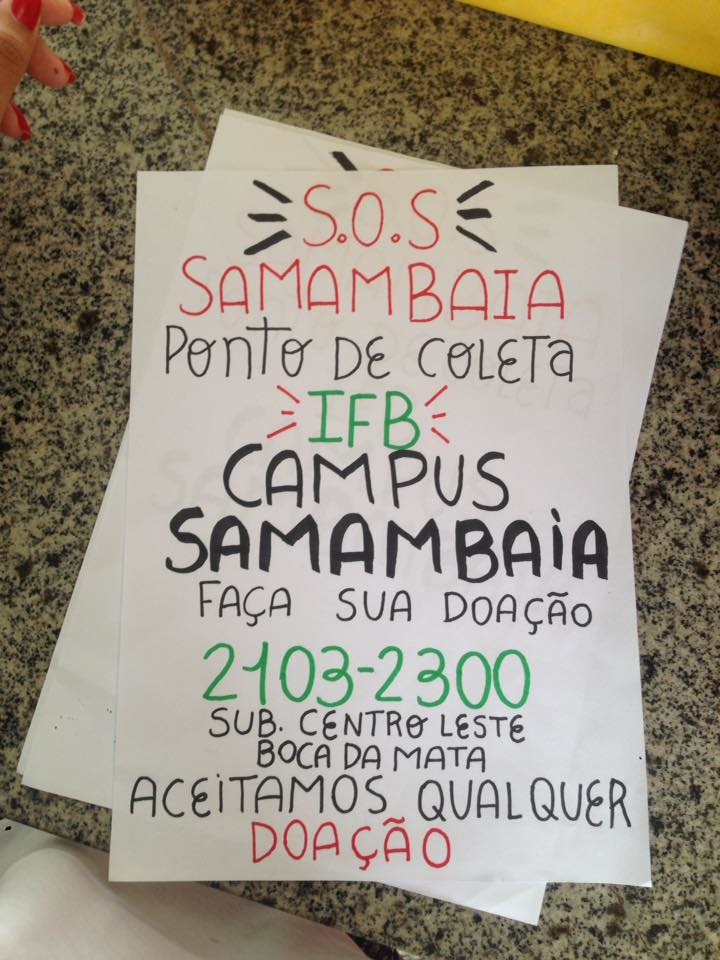 S.O.S
SAMAMBAIA
PONTO DE COLETA
IFB
CAMPUS
SAMAMBAIA
FAÇA SUA DOAÇÃO
2103-2300
SUB. CENTRO LESTE
BOCA DA MATA
ACEITAMOS QUALQUER
DOAÇÃO